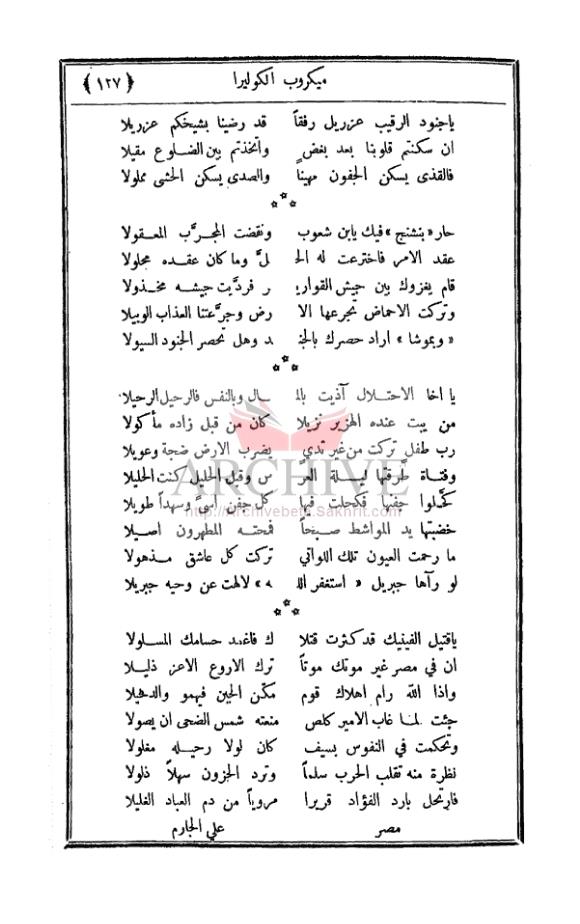 ميكروب الكوليرا ﴿ ١٢٧ ﴾
ياجنود الرقيب عزريل رفقاً قد رضينا بشيخكم عزريلا
ان سكنتم قلوبنا بعد بغض واتخذتم بين الضلوع مقيلا
فالقذى يسكن الجفون مهيناً والصدى يسكن الحشى مملولا
***
حار «بنشنج» فيك يابن شعوب ونقضت المجرَّب المعقولا
عقد الامر فاخترعت له الحـ ـلَّ وما كان عقده محلولا
قام يغزوك بين جيش القواريـ ـر فردَّيت جيشه مخذولا
وتركت الاحماض تجرعها الا رض وجرَّعتنا العذاب الوبيلا
« وبموشا » اراد حصرك بالجنـ ـد وهل تحصر الجنود السيولا
***
يا اخا الاحتلال آذيت بالمـ ـال وبالنفس فالرحيل الرحيلا
من يبت عنده الهزبر نزيلا كان من قبل زاده مأكولا
رب طفل تركت من غير ثدي يضرب الارض ضجة وعويلا
وفتاة طرقتها ليلة العرْ س وقبل الحليل كنت الحليلا
كحَّلوا جفنها فكحلت فيها كل جفن اسىً وسهداً طويلا
خضبتها يد المواشط صبحاً فمحته المطهرون اصيلا
ما رحمت العيون تلك اللواتي تركت كل عاشق مذهولا
لو رآها جبريل « استغفر اللـ ـه » لالهت عن وحيه جبريلا
***
ياقتيل الفينيك قد كثرت قتلا ك فاغمد حسامك المسلولا
ان في مصر غير موتك موتاً ترك الاروع الاعز ذليلا
واذا الله رام اهلاك قوم مكّن الحين فيهمو والدهيلا
جئت لمنا غاب الامير كلص منعته شمس الضحى ان يصولا
وتحكمت في النفوس بسيف كان لولا رحيله مغلولا
نظرة منه تقلب الحرب سلماً وترد الحزون سهلاً ذلولا
فارتحل بارد الفؤاد قريرا مروياً من دم العباد الغليلا
مصر علي الجارم
ARCHIVE
http://Archivebeta.Sakhrit.com